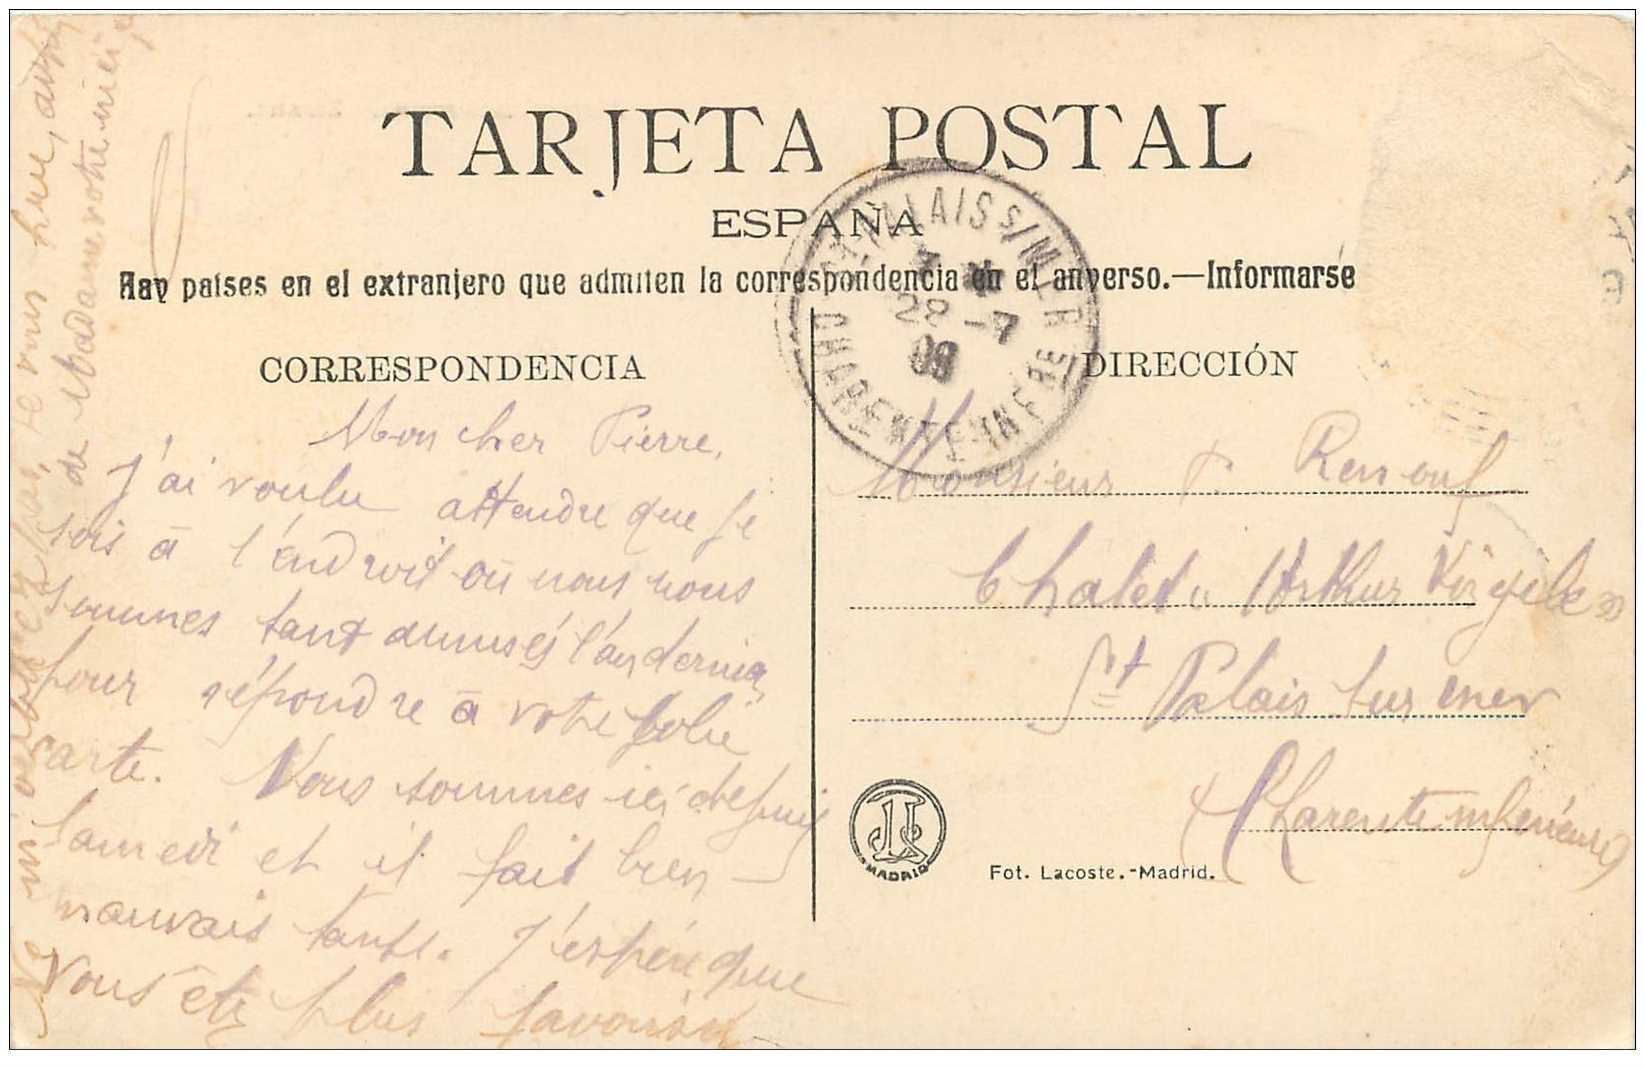 TARJETA POSTAL
ESPAÑA
Hay países en el extranjero que admiten la correspondencia en el anverso.—Informarse
CORRESPONDENCIA
Mon cher Pierre,
J'ai voulu attendre que je
sois à l'endroit où nous nous
sommes tant amusés l'an dernier
pour répondre à votre jolie
carte. Nous sommes ici depuis
samedi et il fait bien
mauvais temps. J'espère que
vous êtes plus favorisé
Ne m'oubliez pas, je vous prie, auprès
de Madame votre mère
DIRECCIÓN
Monsieur P. Renouf
Chalet "Arthur Virgile"
St Palais sur mer
(Charente inférieure)
ST PALAIS S/MER
28 -7
09
CHARENTE INFRE
MADRID
Fot. Lacoste.-Madrid.